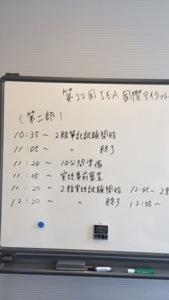 第22回 IEA 国際アイラッシ
(第二部)
10:35〜 2級筆記試験開始
11:05〜 〃 終了
11:20〜 10分間準備
11:05〜 実技事前審査
11:20〜 2級実技試験開始 12:45〜 2級
12:20〜 〃 終了 12:55〜